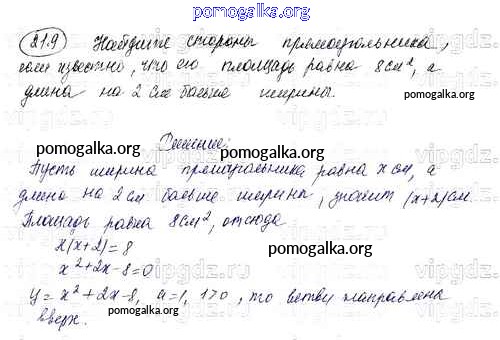 pomogalka.org
21.9 Найдите стороны прямоугольника,
если известно, что его площадь равна 8 см², а
длина на 2 см больше ширины.
pomogalka.org
Решение:
pomogalka.org
Пусть ширина прямоугольника равна x см, а
длина на 2 см больше ширины, значит (x+2) см.
Площадь равна 8 см², отсюда
x(x+2)=8
pomogalka.org
x²+2x-8=0
y=x²+2x-8, a=1, 1>0, то ветви направлена
вверх.
pomogalka.org
pomogalka.org